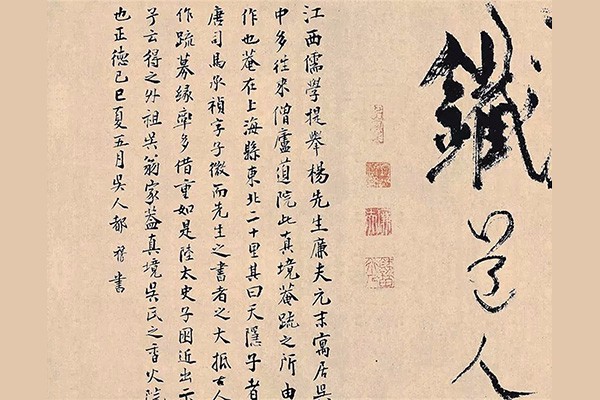 鐵道人
江西儒學提舉楊先生廉夫元末寓居吳
中多往來僧廬道院此真境菴疏之所由
作也菴在上海縣東北二十里其曰天隱子者
唐司馬承禎字子微而先生之書者之大抵古人
作疏募緣率多借重如是陸太史子囦近出示
予云得之外祖吳翁家葢真境吳氏之香火院
也正德己巳夏五月吳人都穆書